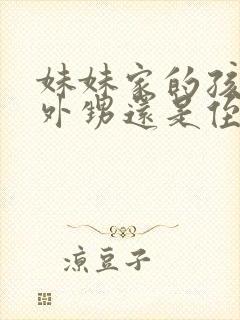 妹妹家的孩
外甥還是侄
涼豆子